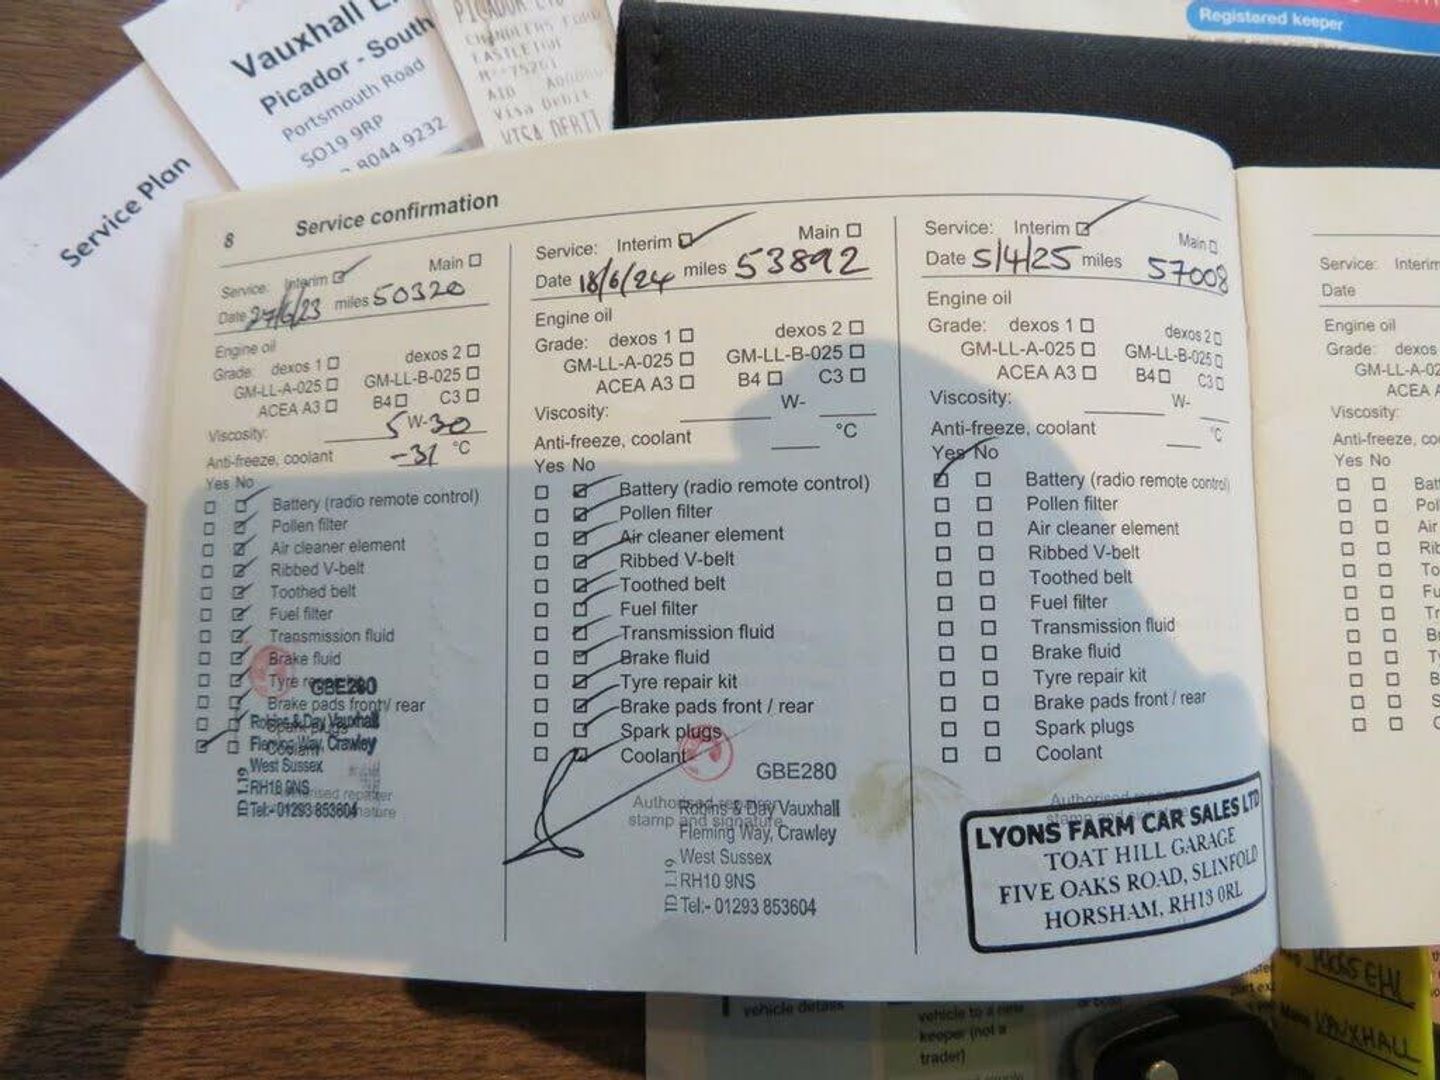 Service Plan
Vauxhall
Picador - South
Portsmouth Road
SO19 9RP
8044 9232
PICADOR LTD
CHANDLERS FORD
EASTLEIGH
AID
Visa Debit
VISA DEBIT
Registered keeper
8 Service confirmation
Service: Interim Main
Date 27/6/23 miles 50320
Engine oil
Grade: dexos 1 dexos 2
GM-LL-A-025 GM-LL-B-025
ACEA A3 B4 C3
Viscosity: 5 W-30
Anti-freeze, coolant -31 °C
Yes No
Battery (radio remote control)
Pollen filter
Air cleaner element
Ribbed V-belt
Toothed belt
Fuel filter
Transmission fluid
Brake fluid
Tyre repair kit
GBE280
Brake pads front / rear
Robins & Day Vauxhall
Spark plugs
Fleming Way, Crawley
Coolant
West Sussex
RH10 9NS
Authorised repairer
Tel:- 01293 853604
ID 1.19
Service: Interim Main
Date 18/6/24 miles 53892
Engine oil
Grade: dexos 1 dexos 2
GM-LL-A-025 GM-LL-B-025
ACEA A3 B4 C3
Viscosity: W-
Anti-freeze, coolant °C
Yes No
Battery (radio remote control)
Pollen filter
Air cleaner element
Ribbed V-belt
Toothed belt
Fuel filter
Transmission fluid
Brake fluid
Tyre repair kit
Brake pads front / rear
Spark plugs
Coolant
GBE280
Authorised repairer
stamp and signature
Robins & Day Vauxhall
Fleming Way, Crawley
West Sussex
RH10 9NS
Tel:- 01293 853604
ID 1.19
Service: Interim Main
Date 5/4/25 miles 57008
Engine oil
Grade: dexos 1 dexos 2
GM-LL-A-025 GM-LL-B-025
ACEA A3 B4 C3
Viscosity: W-
Anti-freeze, coolant °C
Yes No
Battery (radio remote control)
Pollen filter
Air cleaner element
Ribbed V-belt
Toothed belt
Fuel filter
Transmission fluid
Brake fluid
Tyre repair kit
Brake pads front / rear
Spark plugs
Coolant
Authorised repairer
stamp and signature
LYONS FARM CAR SALES LTD
TOAT HILL GARAGE
FIVE OAKS ROAD, SLINFOLD
HORSHAM, RH13 0RL
Service: Interim
Date
Engine oil
Grade: dexos
GM-LL-A-02
ACEA A
Viscosity:
Anti-freeze, co
Yes No
Batt
Pol
Air
Rib
To
Fu
Tr
B
T
B
S
C
vehicle details
vehicle to a new
keeper (not a
trader)
VAUXHALL